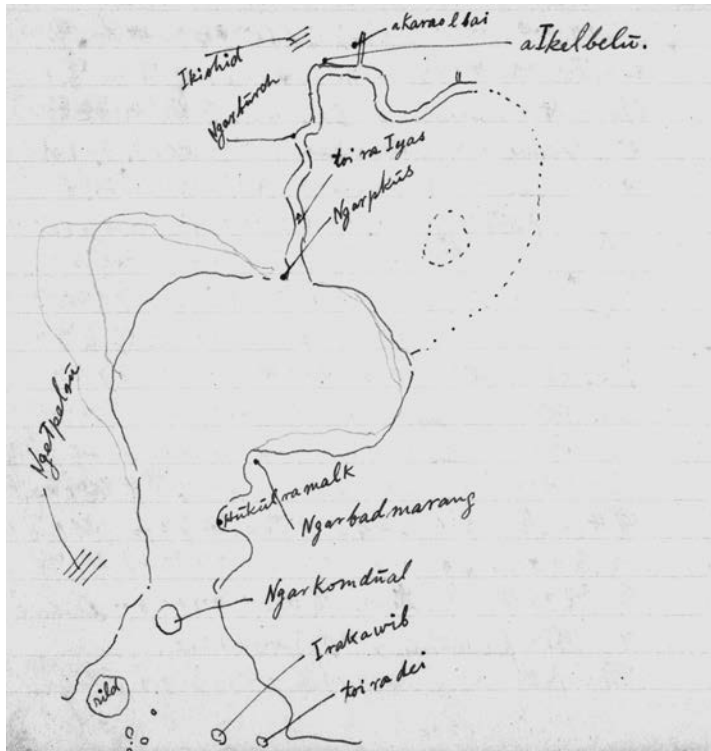 akaraolbai
aIkelbelū.
Ikishid
Ngarbūrch
toi ra Iyas
Ngarpkūs
Ngetpelau
Hūkūlramalk
Ngarbadmarang
Ngarkomdūal
Irakawib
toi ra dei
rild